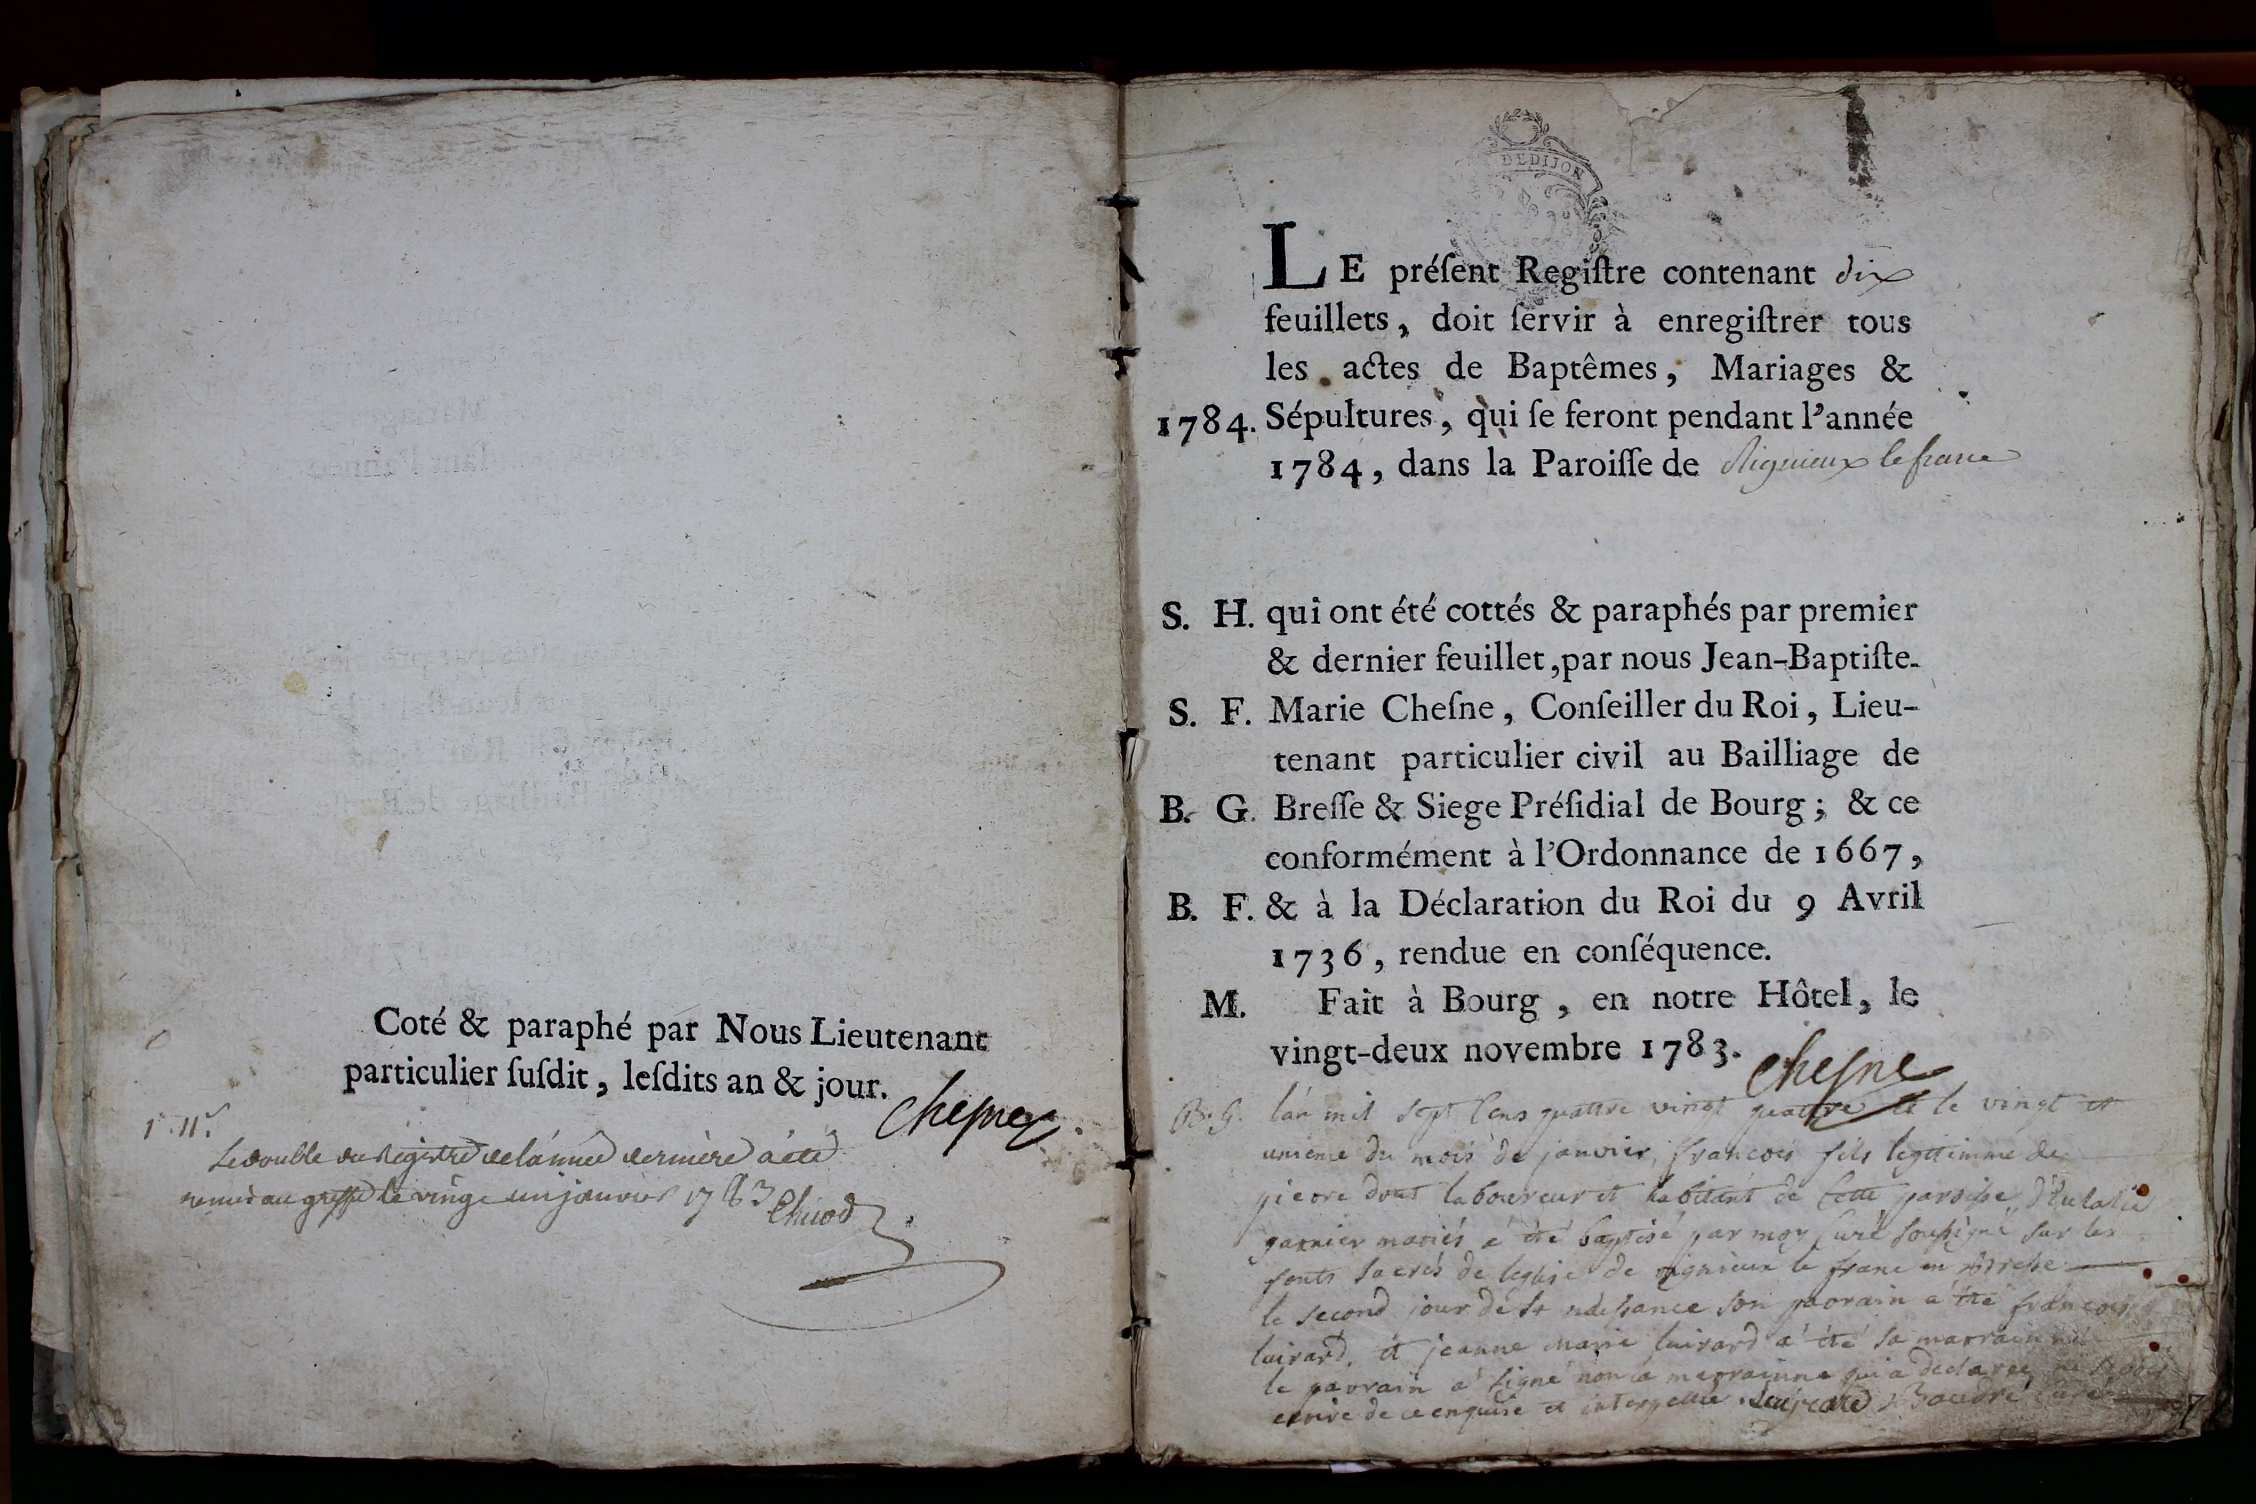 Coté & paraphé par Nous Lieutenant
particulier susdit, lesdits an & jour.
Chesne
1r. 11r.
Le double du Régistre de l'année dernière a été
remis au greffe le vingt un janvier 1783 Chicod
DE DIJON
LE présent Registre contenant dix
feuillets, doit servir à enregistrer tous
les actes de Baptêmes, Mariages &
1784. Sépultures, qui se feront pendant l'année
1784, dans la Paroisse de Rignieux le franc
S. H. qui ont été cottés & paraphés par premier
& dernier feuillet, par nous Jean-Baptiste-
S. F. Marie Chesne, Conseiller du Roi, Lieu-
tenant particulier civil au Bailliage de
B. G. Bresse & Siege Présidial de Bourg ; & ce
conformément à l'Ordonnance de 1667,
B. F. & à la Déclaration du Roi du 9 Avril
1736, rendue en conséquence.
M. Fait à Bourg, en notre Hôtel, le
vingt-deux novembre 1783.
Chesne
B. G. l'an mil sept Cens quattre vingt quattre le vingt et
unieme du mois de janvier, francois fils legitimme de
pierre laboureur et habitant de Cette paroisse, d'Eulalie
garnier mariés a été baptisé par moy Curé soussigné sur les
fonts sacrés de leglise de rignieux le franc en Bresse
le second jour de sa naissance son parrain a été francois
luirard, et jeanne marie luirard a été sa marrainne
le parrain a signé non la marrainne qui a declaree ne savoir
ecrire de ce enquise et interpellée. Luirard Baudré curé